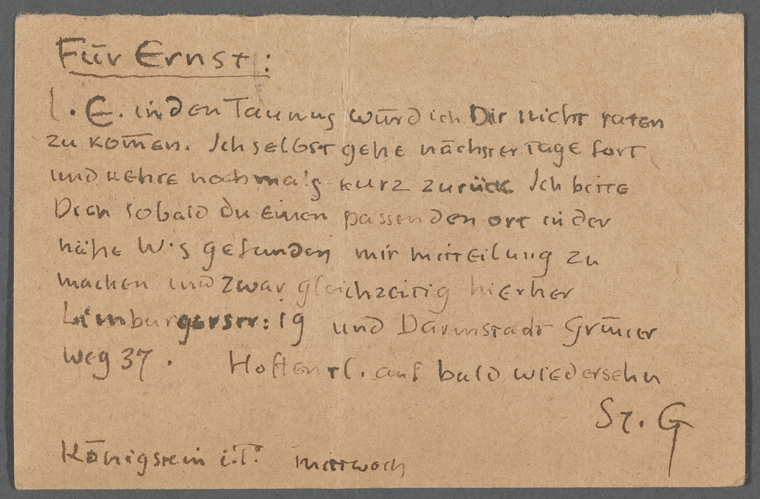 Für Ernst:
l. E. in den Taunus würd ich Dir nicht raten
zu kom̄en. Ich selbst gehe nächster tage fort
und kehre nochmals kurz zurück Ich bitte
Dich sobald du einen passenden ort in der
nähe W's gefunden mir mitteilung zu
machen und zwar gleichzeitig hierher
Limburgerstr: 19 und Darmstadt Grüner
weg 37. Hoffentl. auf bald wiedersehn
St. G
Königstein i. T. mittwoch